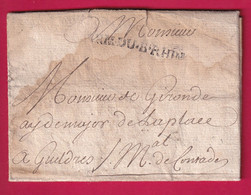 A Monsieur
ARM.DU.B.RHIN
Monsieur de Gironde
aydemajor de la place
a Gueldres / M.al de Contades